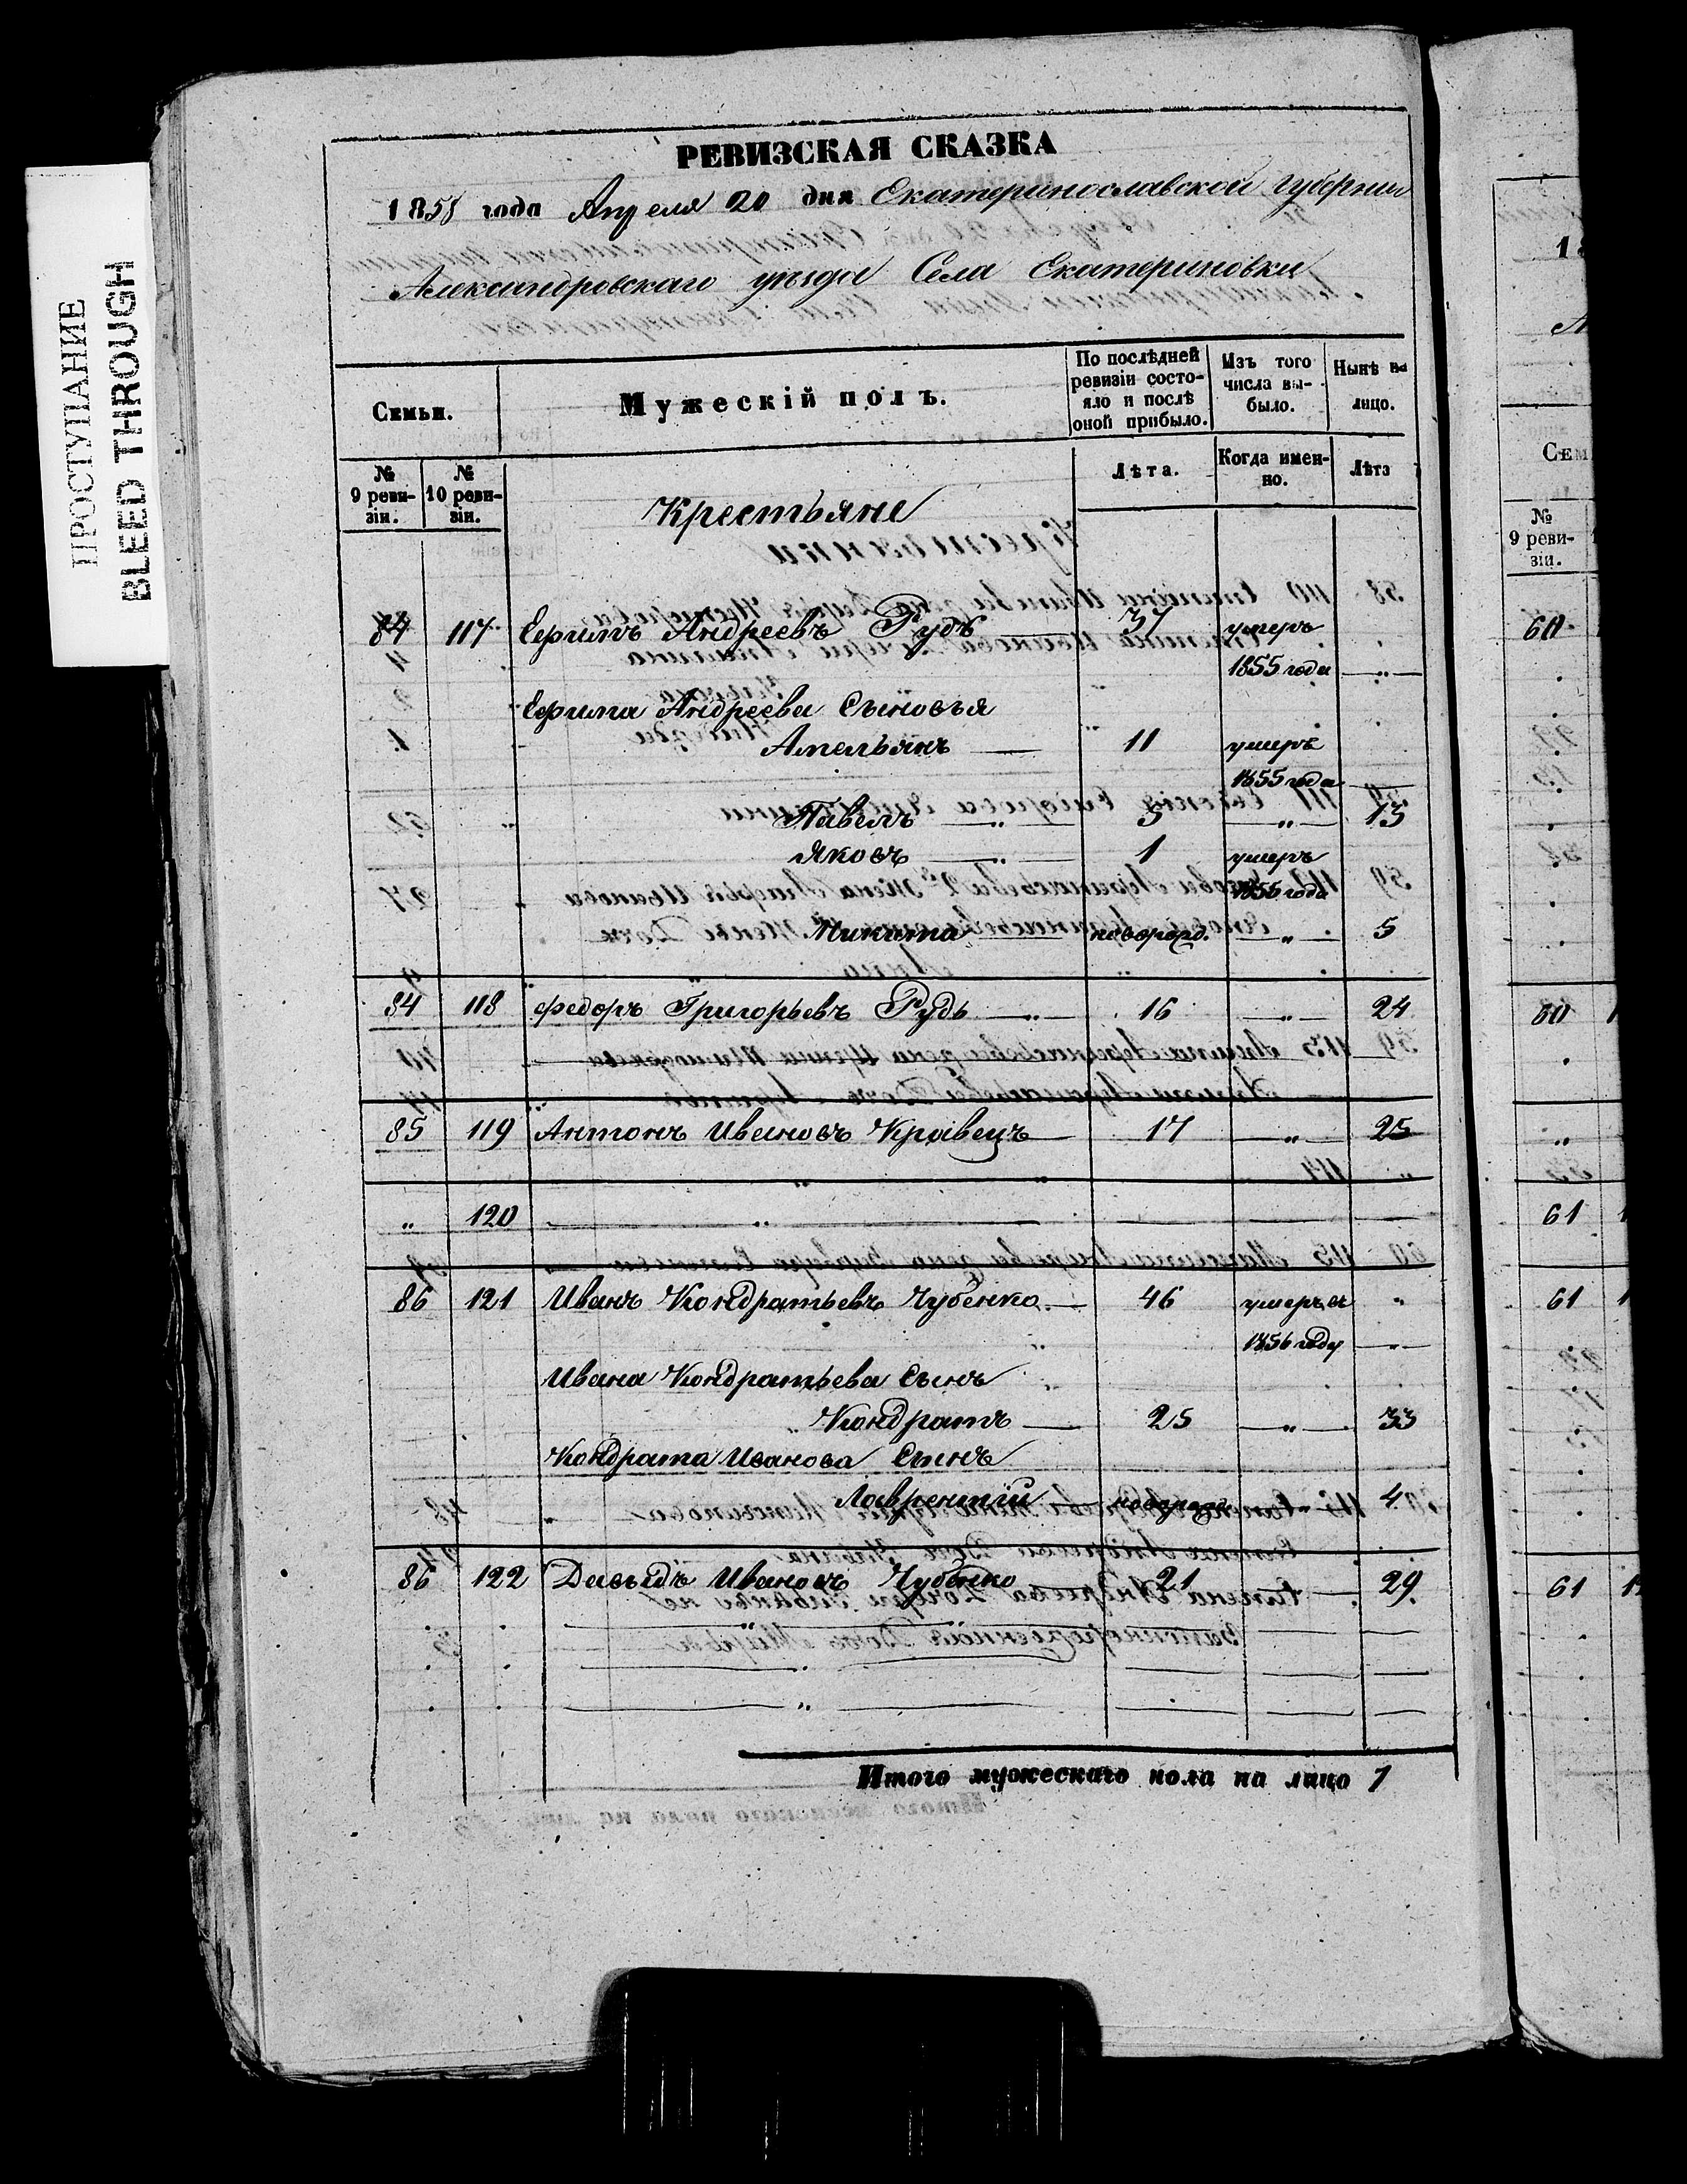 ПРОСТУПАНИЕ
BLEED THROUGH
РЕВИЗСКАЯ СКАЗКА
1858 года Апреля 20 дня Екатеринославской Губернии
Александровскаго уѣзда Села Екатериновки
Семьи.
Мужескій полъ.
По послѣдней ревизіи состояло и послѣ оной прибыло.
Изъ того числа выбыло.
Нынѣ на лицо.
№ 9 ревизіи.
№ 10 ревизіи.
Лѣта.
Когда именно.
Лѣта
Крестьяне
84 117 Ефимъ Андреевъ Рудь умеръ
1855 года "
Ефима Андреева Сыновья
Амельянъ 11 умеръ
1855 года
Павелъ " 5 " 13
Яковъ " 1 умеръ
1856 года
Никита новорожд. " 5
84 118 Федоръ Григорьевъ Рудь " 16 " 24
85 119 Антонъ Ивановъ Кравецъ 17 " 25
" 120 "
86 121 Иванъ Кондратьевъ Чубенко 46 умеръ въ "
1856 году "
Ивана Кондратьева Сынъ
Кондратъ 25 " 33
Кондрата Иванова Сынъ
Лаврентій новорожд. " 4
86 122 Давыдъ Ивановъ Чубенко 21 29
Итого мужескаго пола на лицо 7
№
9 ревизіи.
60
60
61
61
61